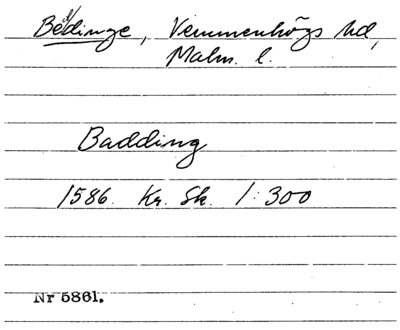 Beddinge, Vemmenhögs hd,
Malm. l.
Badding
1586. Kr. Sk. 1:300
Nr 5861.